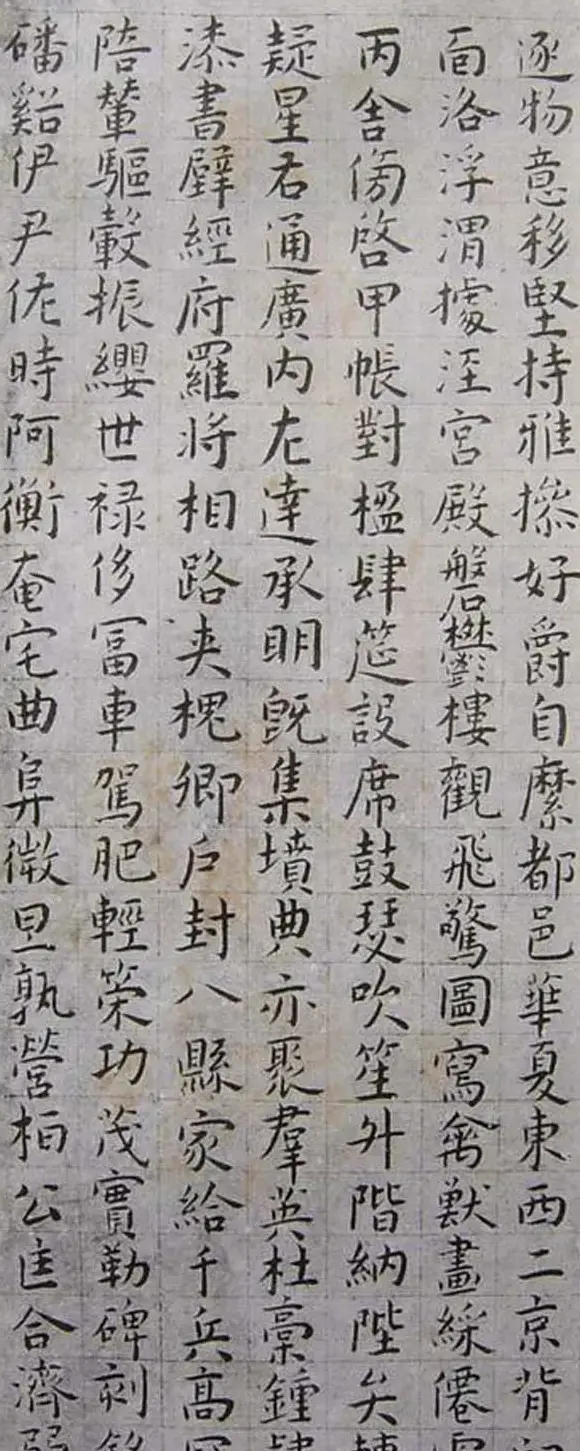 逐物意移堅持雅操好爵自縻都邑華夏東西二京背
面洛浮渭據涇宮殿磐欝樓觀飛驚圖寫禽獸畫綵僊
丙舎傍啓甲帳對楹肆筵設席鼓瑟吹笙升階納陛弁
疑星右通廣内左達承明既集墳典亦聚羣英杜藁鍾
漆書壁經府羅将相路夾槐卿戶封八縣家給千兵高
陪輦驅轂振纓世禄侈冨車駕肥輕策功茂實勒碑刻
磻谿伊尹佐時阿衡奄宅曲阜微旦孰營桓公匡合濟